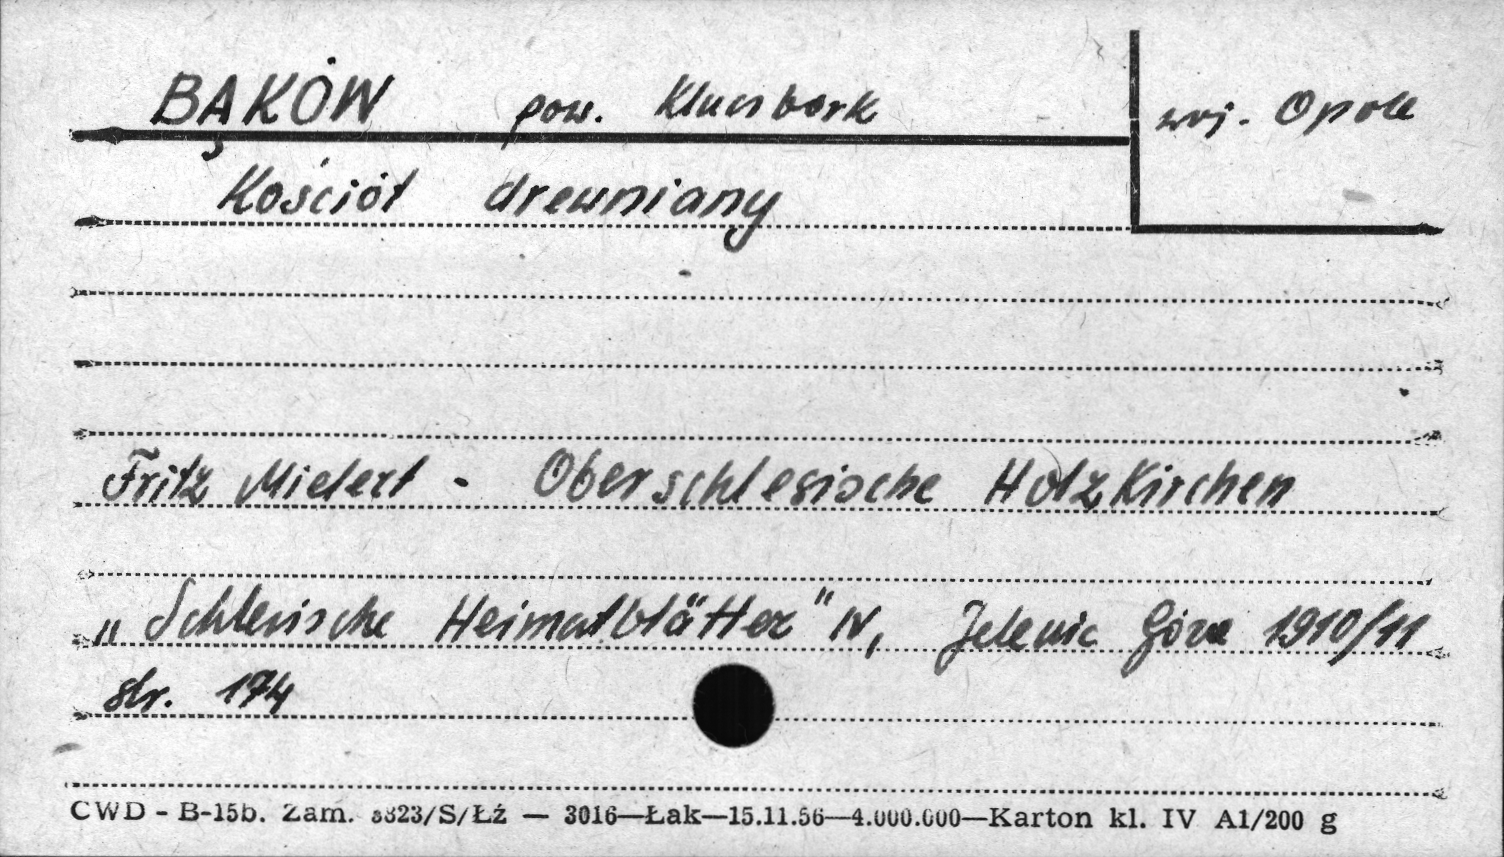 BĄKÓW pow. Kluczbork woj. Opole
Kościół drewniany
Fritz Mielert - Oberschlesische Holzkirchen
„Schlesische Heimatblätter" IV, Jelenia Góra 1910/11
str. 174
CWD - B-15b. Zam. 8823/S/Łź — 3016—Łak—15.11.56—4.000.000—Karton kl. IV A1/200 g